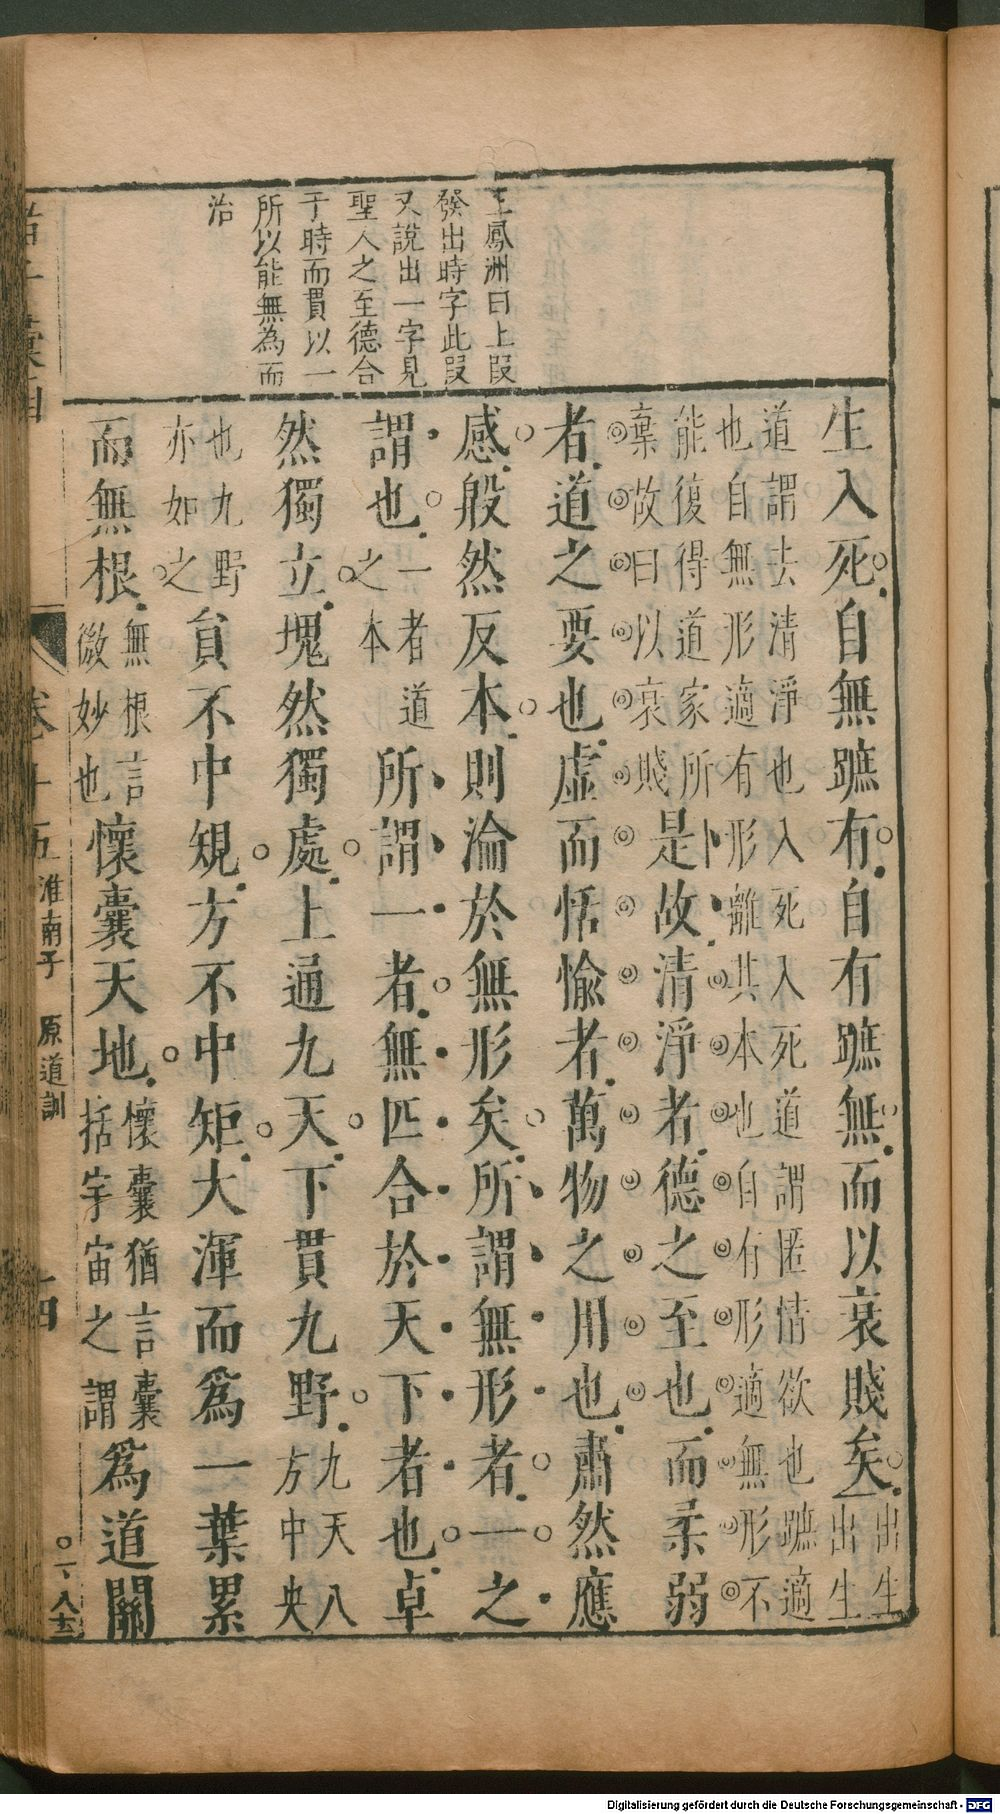 王鳳洲曰上段
發出時字此段
又說出一字見
聖人之至德合
于時而貫以一
所以能無為而
治
生入死自無蹠有自有蹠無而以衰賤矣出生出生
道謂去清淨也入死入死道謂匿情欲也蹠適
也自無形適有形離其本也自有形適無形不
能復得道家所
棄故曰以衰賤
是故清淨者德之至也而柔弱
者道之要也虛而恬愉者萬物之用也肅然應
感殷然反本則淪於無形矣所謂無形者一之
謂也一者道之本所謂一者無匹合於天下者也卓
然獨立塊然獨處上通九天下貫九野九天八方中央
也九野亦如之員不中規方不中矩大渾而爲一葉累
而無根無根言微妙也懷囊天地懷囊猶言囊括宇宙之謂爲道關
卷十五 淮南子 原道訓 十四
Digitalisierung gefördert durch die Deutsche Forschungsgemeinschaft - DFG